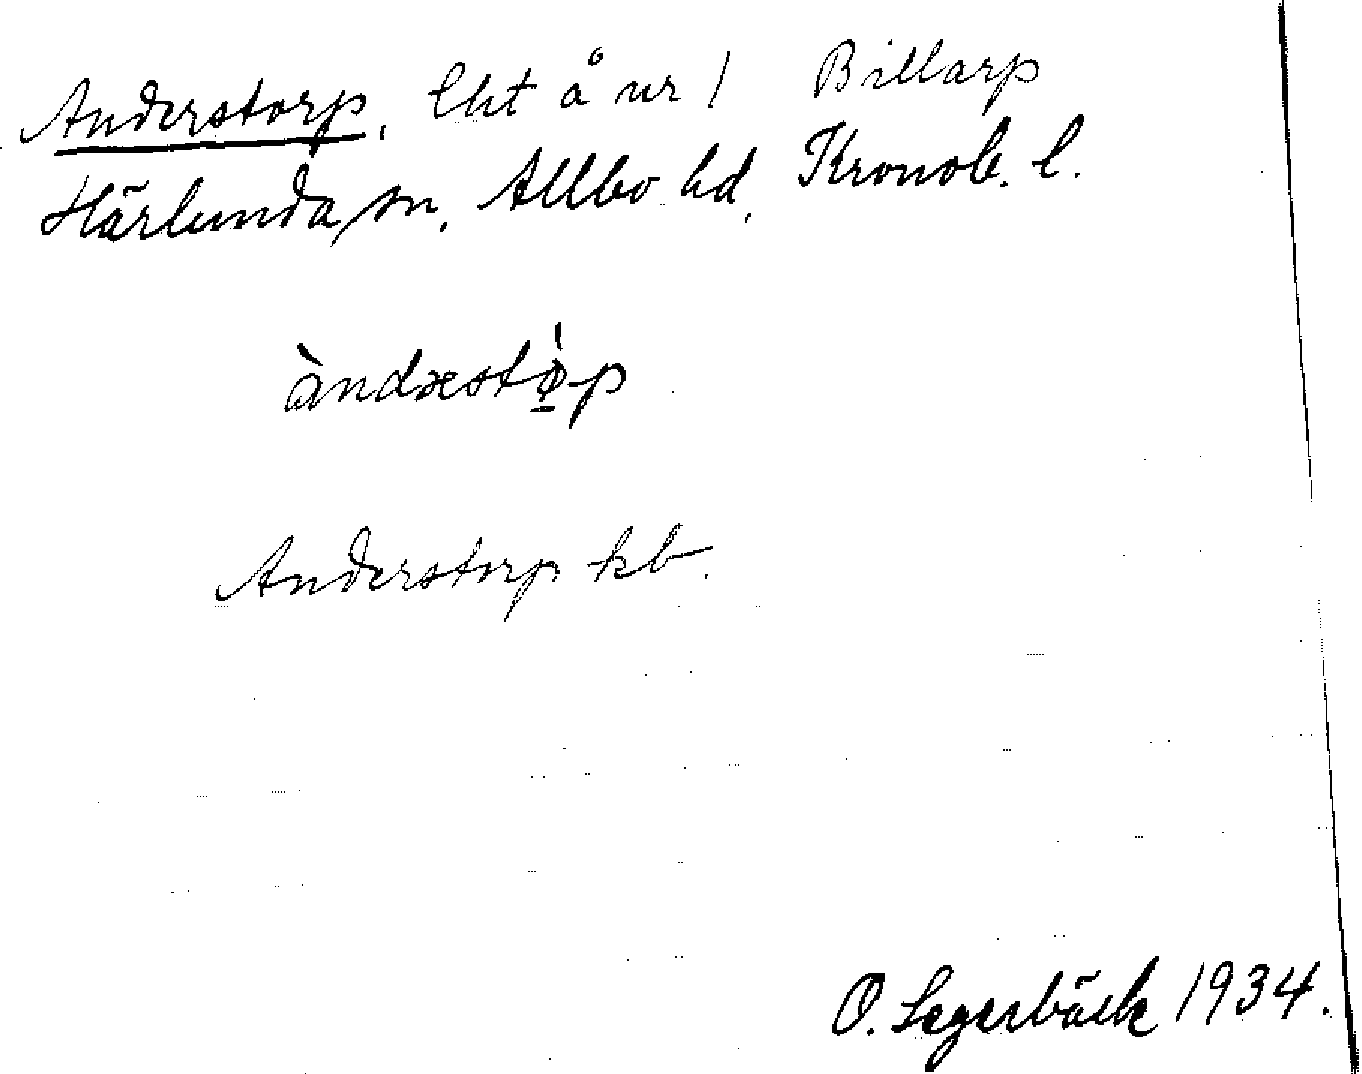 Anderstorp. lht å nr 1 Billarp
Härlunda sn. Allbo hd. Kronob. l.
àndæstò̱p
Anderstorp kb.
O. Segerbäck 1934.